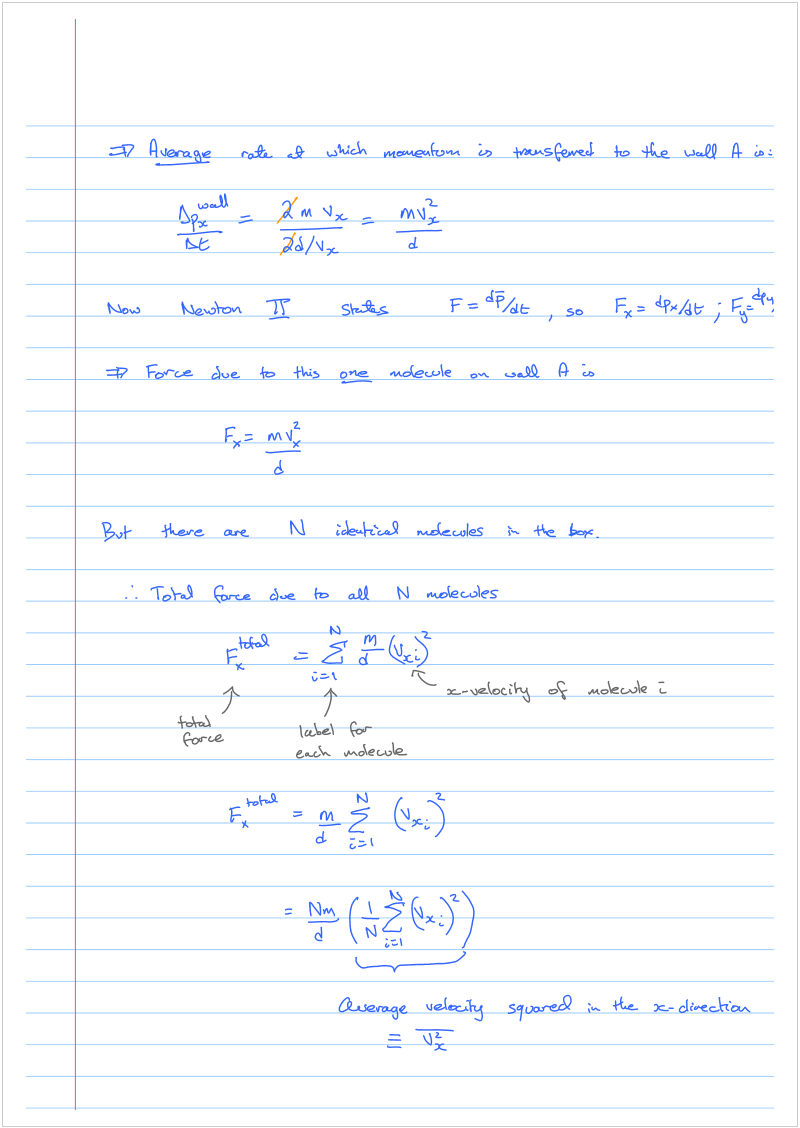 ⇒ Average rate at which momentum is transferred to the wall A is:
Δp_x^wall / Δt = 2 m v_x / 2d/v_x = m v_x^2 / d
Now Newton II states F = dp̄/dt, so F_x = dp_x/dt ; F_y = dp_y
⇒ Force due to this one molecule on wall A is
F_x = m v_x^2 / d
But there are N identical molecules in the box.
∴ Total force due to all N molecules
F_x^total = ∑_{i=1}^{N} m/d (v_{xi})^2
x-velocity of molecule i
total force
label for each molecule
F_x^total = m/d ∑_{i=1}^{N} (v_{xi})^2
= Nm/d ( 1/N ∑_{i=1}^{N} (v_{xi})^2 )
Average velocity squared in the x-direction
≡ \overline{v_x^2}